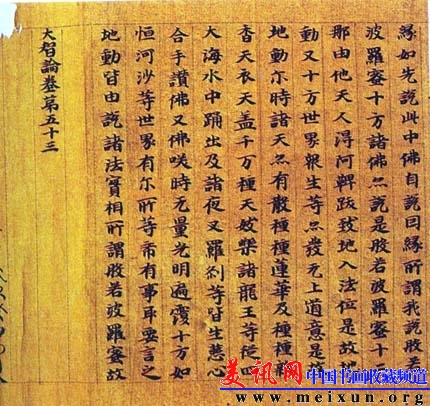 緣如先說此中佛自說因緣所謂我說般若
波羅蜜十方諸佛亦說是般若波羅蜜十二
那由他天人得阿鞞跋致地入法位是故地
動又十方世界衆生等亦發无上道意是故
地動尒時諸天亦有散種種蓮華及種種
香天衣天盖千万種天妓樂諸龍王等從四
大海水中踊出及諸夜叉羅刹等皆生慈心
合手讃佛又佛咲時无量光明遍覆十方如
恒河沙等世界有尒所等希有事耳要言之
地動皆由說諸法實相所謂般若波羅蜜故
大智論卷第五十三
美讯网 中国书画收藏频道
www.meixun.org